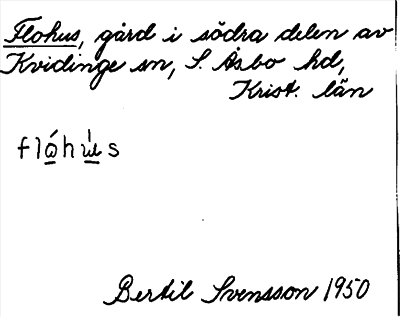 Flohus, gård i södra delen av
Kvidinge sn, S. Åsbo hd,
Krist. län
flώhɯ́s
Bertil Svensson 1950